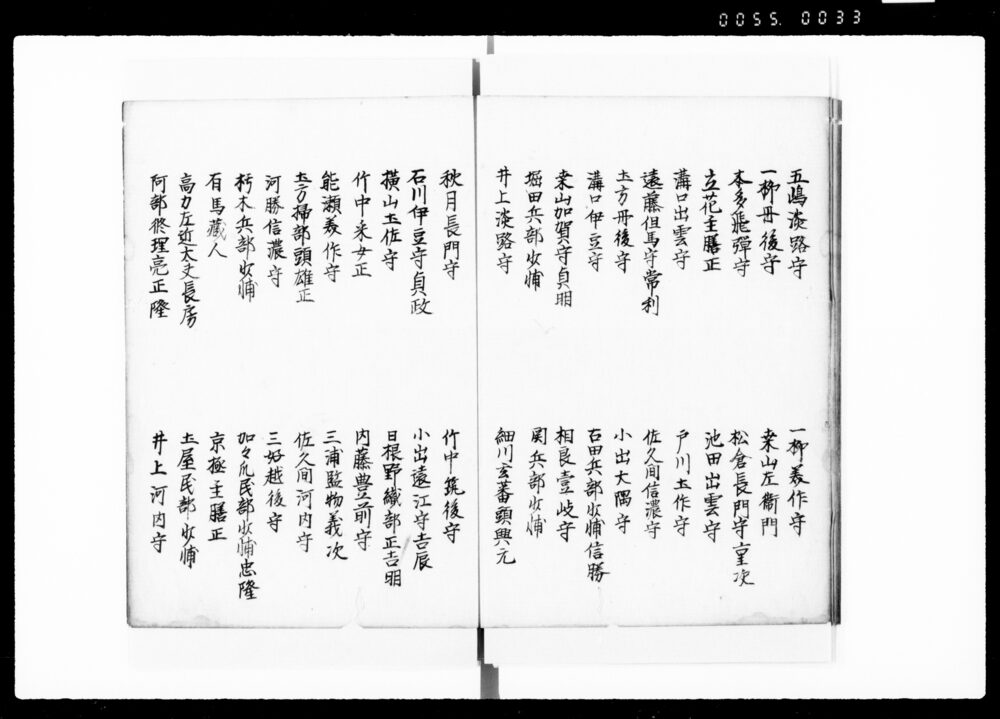 0055. 0033
五嶋淡路守
一柳丹後守
本多飛弾守
立花主膳正
溝口出雲守
遠藤但馬守常利
土方丹後守
溝口伊豆守
桑山加賀守貞明
堀田兵部少輔
井上淡路守
一柳美作守
桑山左衛門
松倉長門守重次
池田出雲守
戸川土作守
佐久間信濃守
小出大隅守
石田兵部少輔信勝
相良壹岐守
関兵部少輔
細川玄蕃頭興元
秋月長門守
石川伊豆守貞政
横山土佐守
竹中采女正
能瀬美作守
土方掃部頭雄正
河勝信濃守
朽木兵部少輔
有馬藏人
高力左近太夫長房
阿部修理亮正隆
竹中筑後守
小出遠江守吉辰
日根野織部正吉明
内藤豊前守
三浦監物義次
佐久間河内守
三好越後守
加々爪民部少輔忠隆
京極主膳正
土屋民部少輔
井上河内守